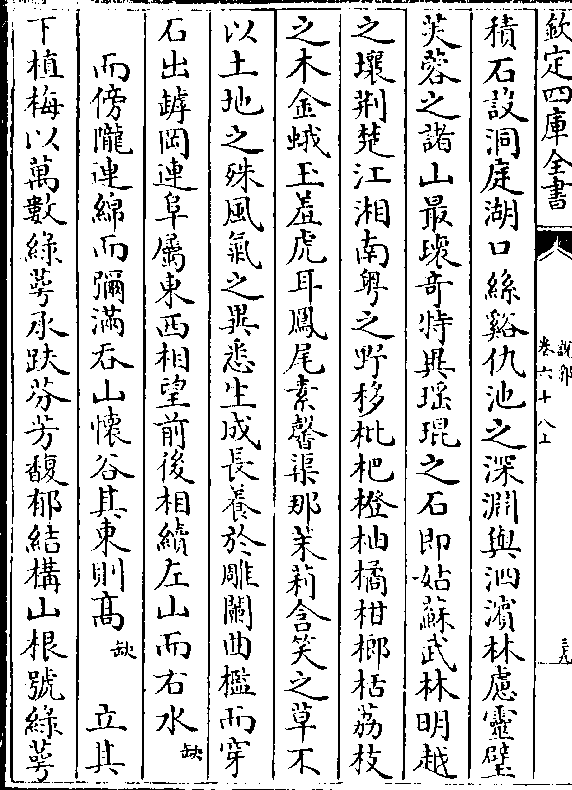 欽定四庫全書
說郛
卷六十八上
三九
積石設洞庭湖口絲谿仇池之深淵與泗濱林慮靈璧
芙蓉之諸山最瓌奇特異瑶琨之石即姑蘇武林明越
之壤荆楚江湘南粤之野移枇杷橙柚橘柑榔栝荔枝
之木金蛾玉羞虎耳鳳尾素馨渠那茉莉含笑之草不
以土地之殊風氣之異悉生成長養於雕闌曲檻而穿
石出罅岡連阜屬東西相望前後相續左山而右水缺
而傍隴連綿而彌滿吞山懷谷其東則髙缺立其
下植梅以萬數緑蕚承趺芬芳馥郁結構山根號緑蕚